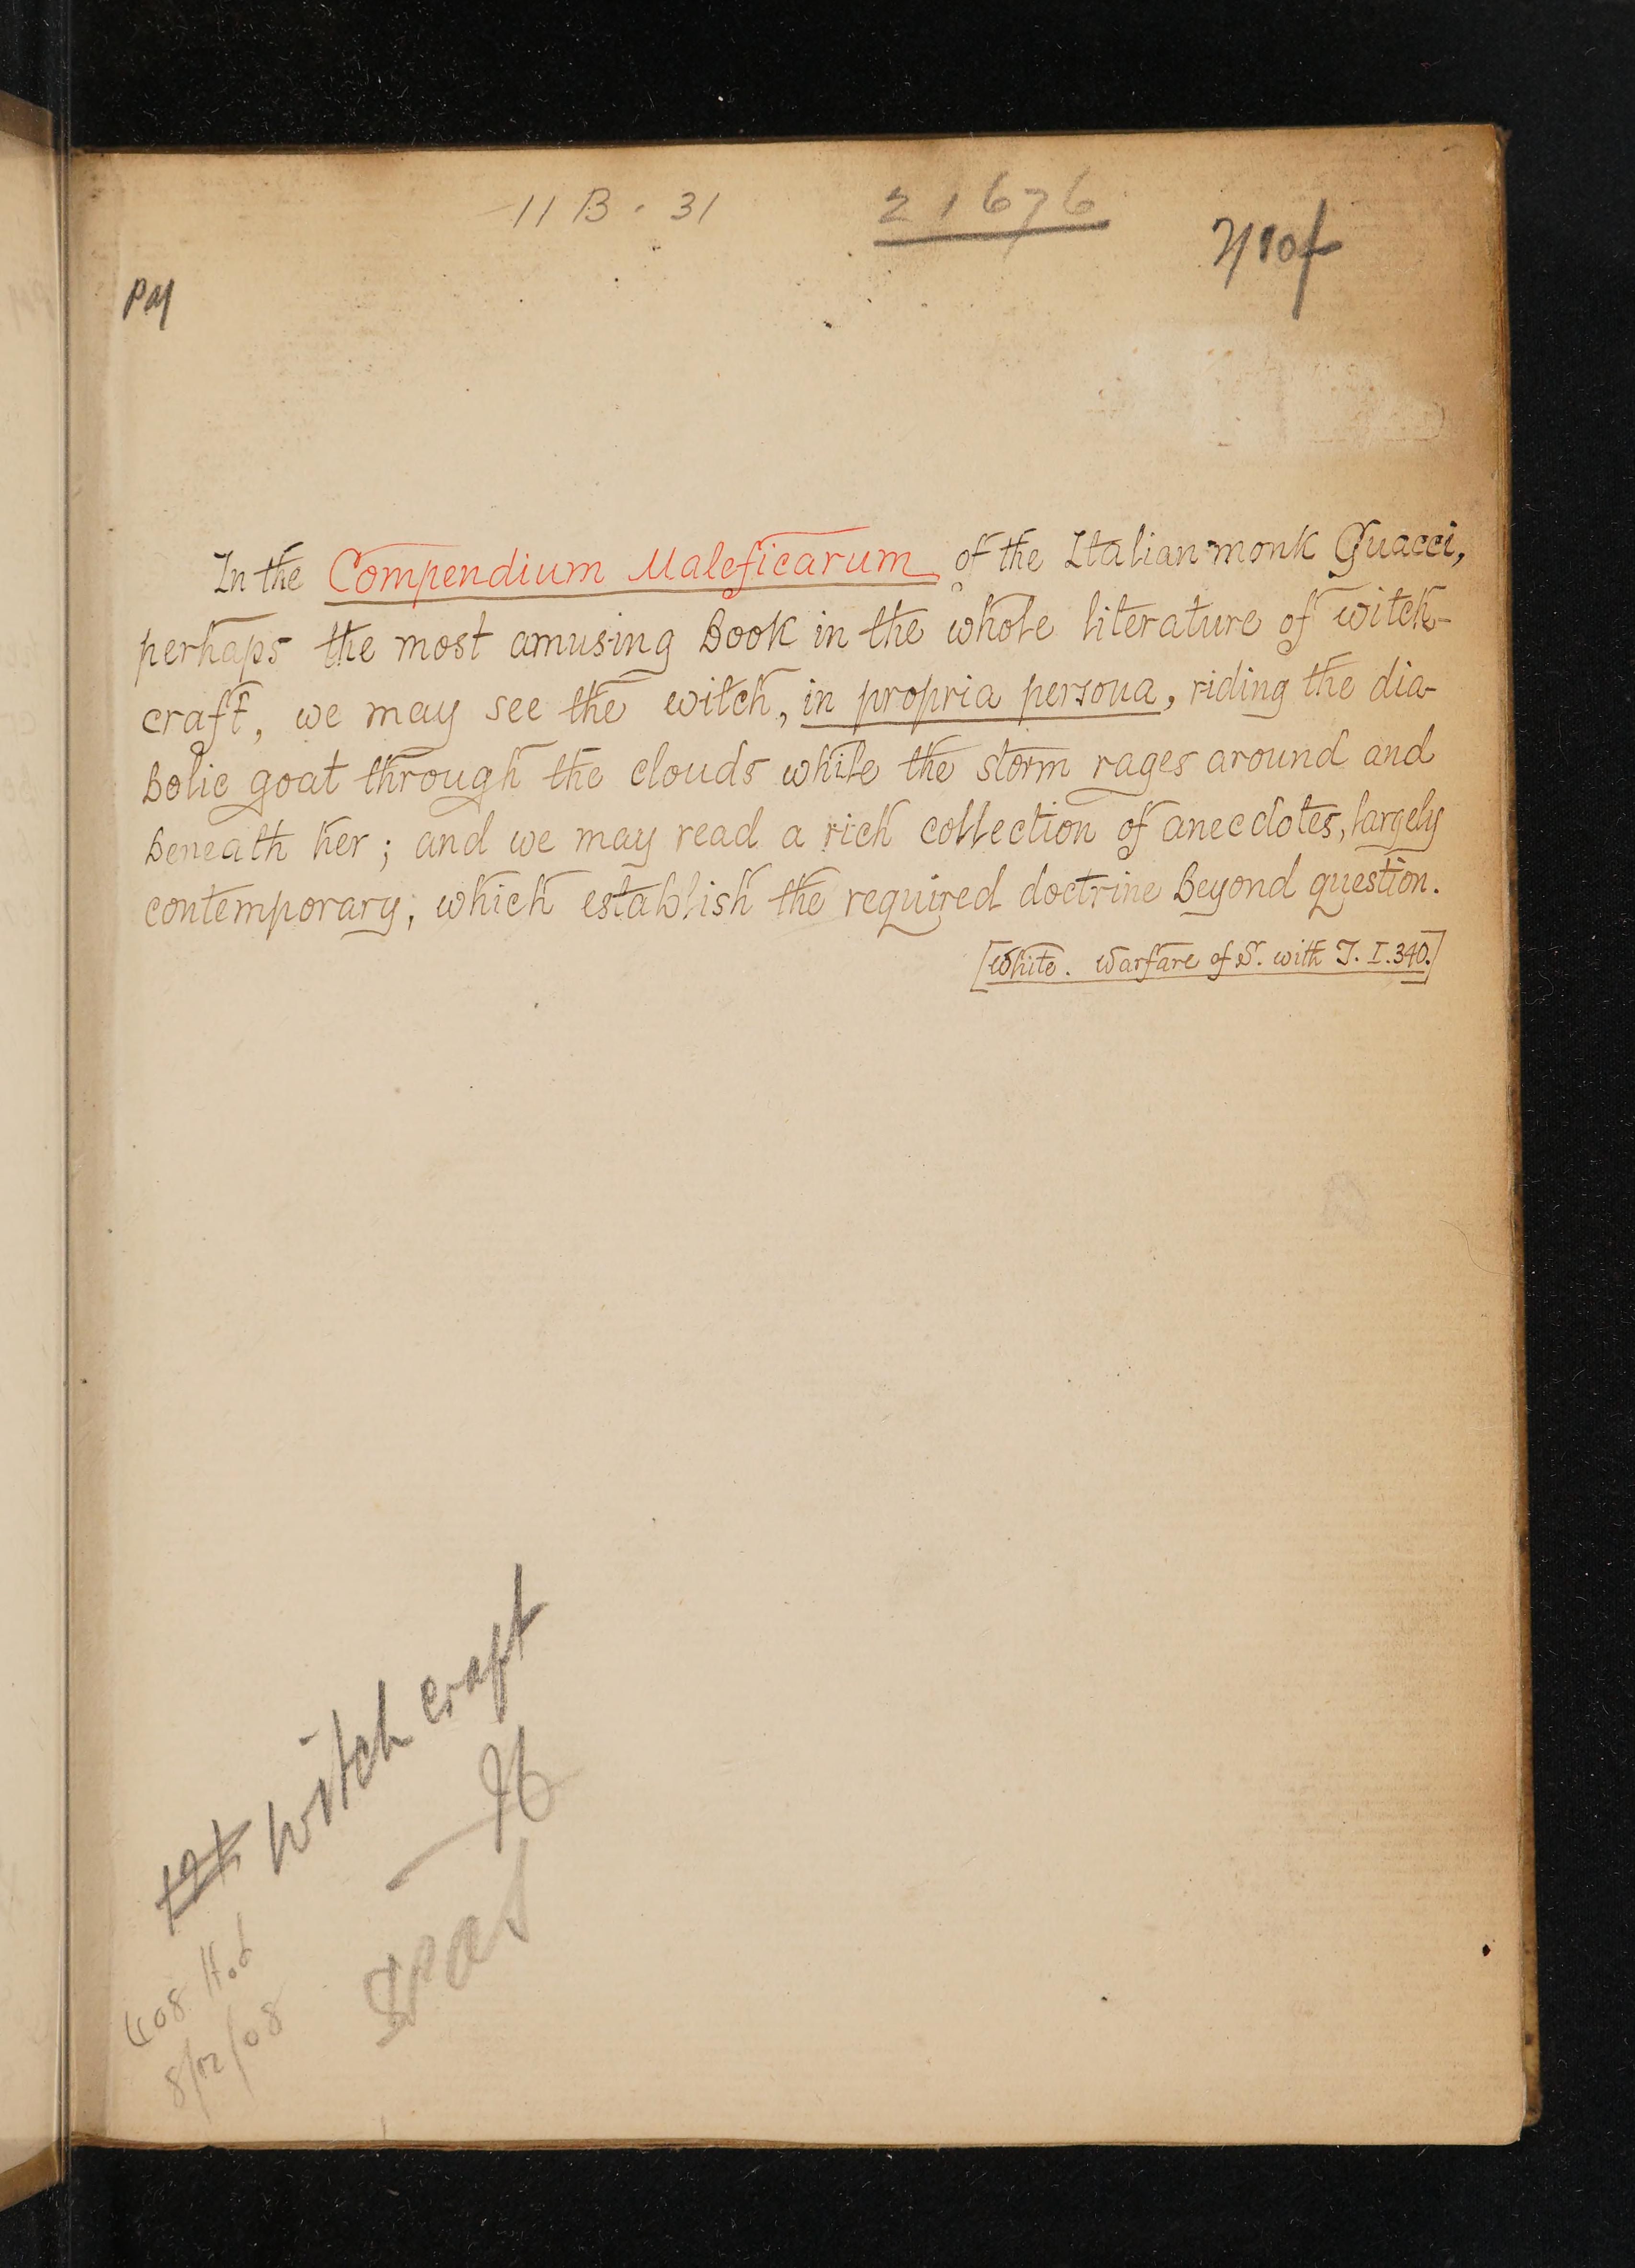 11 B. 31
21676
PM
In the Compendium Maleficarum of the Italian monk Guacci,
perhaps the most amusing book in the whole literature of witch-
craft, we may see the witch, in propria persona, riding the dia-
bolic goat through the clouds while the storm rages around and
beneath her; and we may read a rich collection of anecdotes, largely
contemporary, which establish the required doctrine beyond question.
[White. Warfare of S. with T. I. 340.]
witch craft
8/12/08